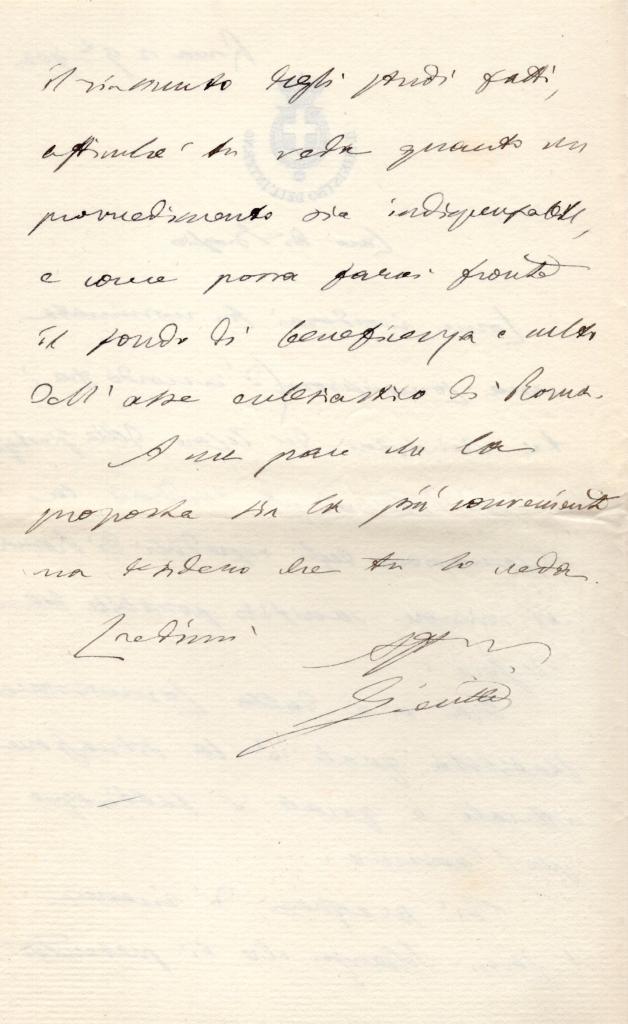 il riassunto degli studi fatti,
affinché tu veda quanto un
provvedimento sia indispensabile,
e come possa farvi fronte
il fondo di beneficenza e culto
dell'asse ecclesiastico di Roma.
A me pare che la
proposta sia la più conveniente
ma desidero che tu lo veda.
Credimi
Aff
Giolitti